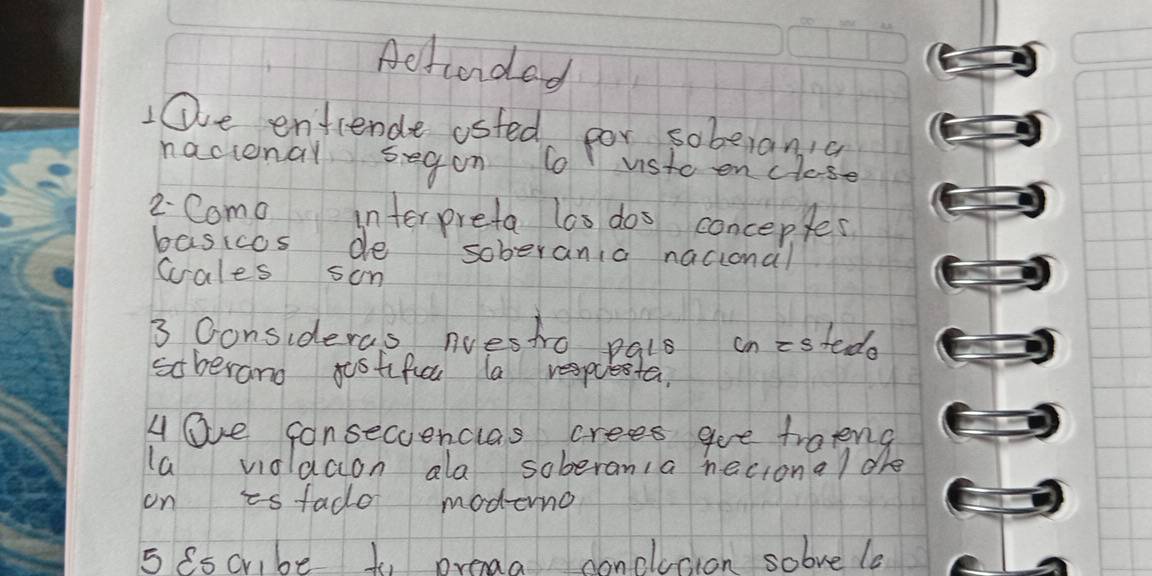 Actividad
1 Que entiende usted por soberania
nacional segun lo visto en clase
2- Como interpreta los dos conceptos
basicos de soberania nacional
Cuales son
3 Consideras nuestro pais un Estado
soberano justifica la respuesta.
4 Que consecuencias crees que traeria
la violacion ala soberania nacional de
un Estado moderno
5 Escribe tu propia conclucion sobre la